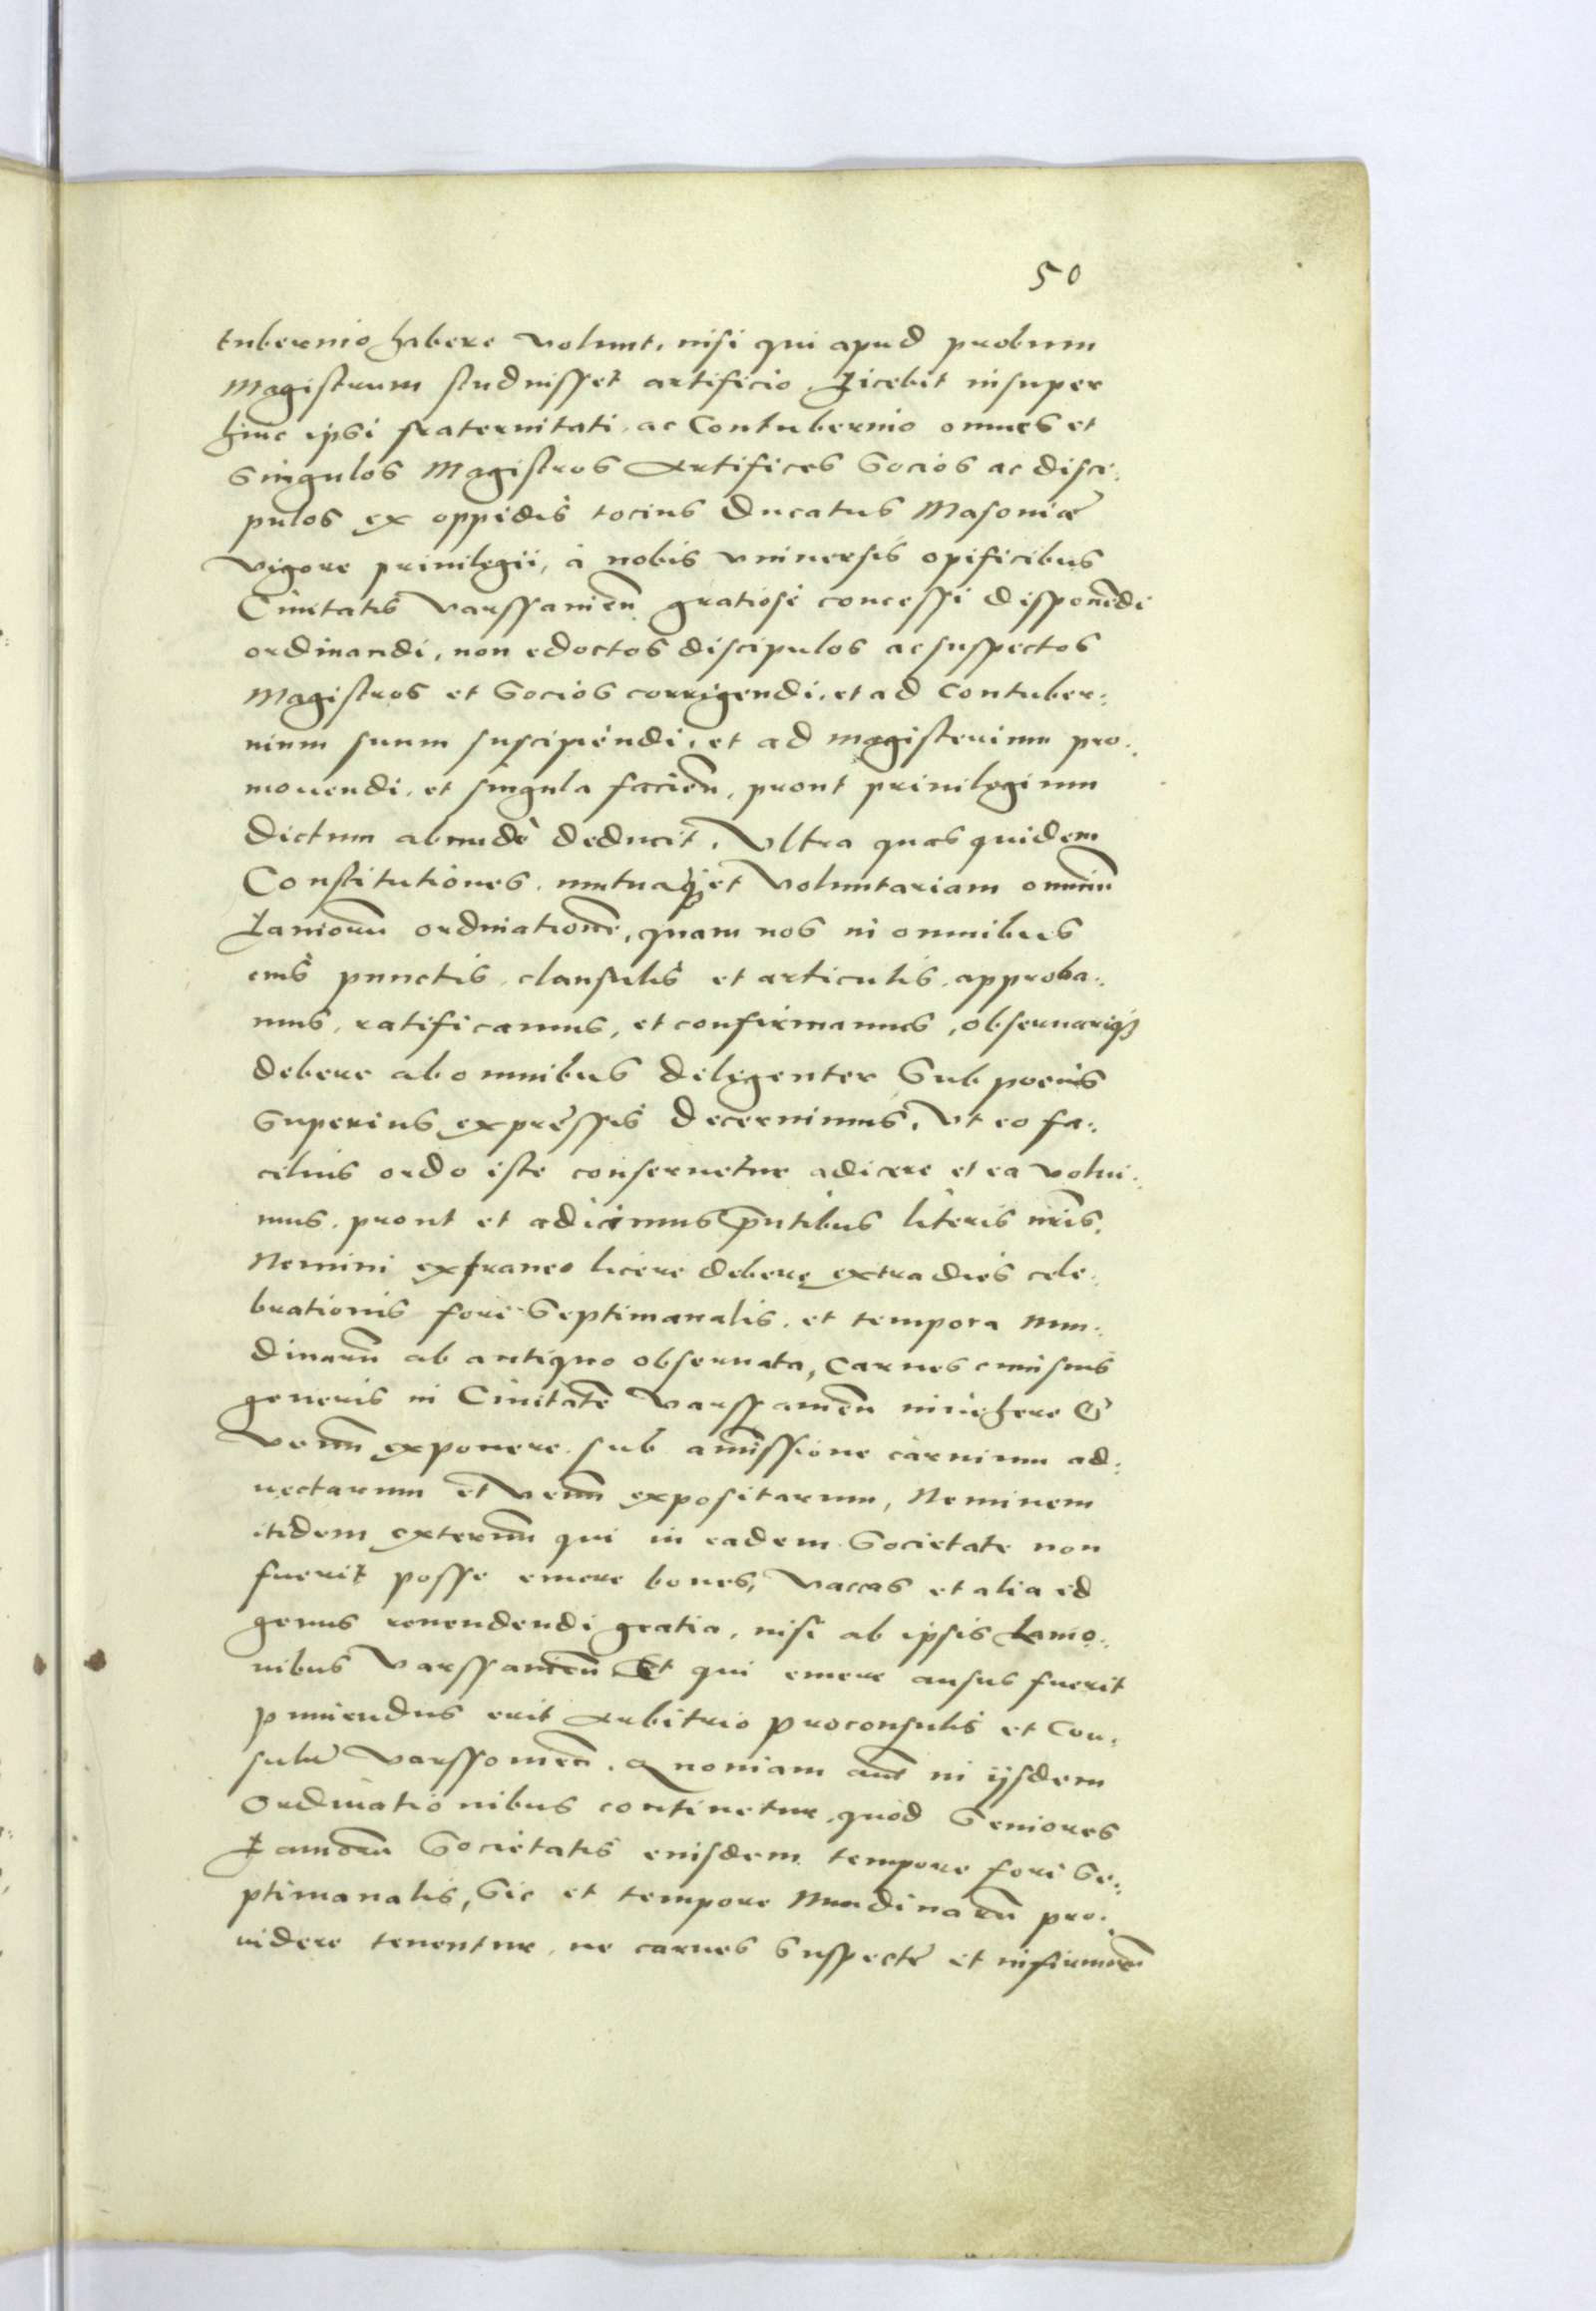 50
tubernio habere volunt, nisi qui apud probum
Magistrum studuisset artificio. Licebit insuper
huic ipsi fraternitati, ac Contubernio omnes et
singulos Magistros Artifices Socios ac disci:
pulos ex oppidis tocius Ducatus Masoniæ
vigore priuilegii, à nobis vniuersis opificibus
Ciuitatis Varssauień gratiosè concessi disponēdi
ordinandi, non edoctos discipulos ac suspectos
Magistros et Socios corrigendi, et ad Contuber:
nium suum suscipiēndi, et ad magisterium pro:
mouendi, et singula facień, prout priuilegium
dictum abundè deducit. Vltra quas quidem
Constitutiones, mutuāq; et Voluntariam omniū
Laniorū ordinationē, quam nos in omnibus
eius punctis, clausulis et articulis, approba:
mus, ratificamus, et confirmamus, obseruariq;
debere ab omnibus deligenter sub poenis
superius expressis decernimus. Vt eo fa:
cilius ordo iste conseruetur adicere et ea volui:
mus, prout et adicimus p̄ntibus literis nr̄is,
Nemini extraneo licere debere extra dies cele:
brationis fori Septimanalis, et tempora Nun:
dinarū ab antiquo obseruata, Carnes cuiusuis
generis in Ciuitatē Varssauień inuehere &
venū exponere, sub amissione carnium ad:
uectarum et venū expositarum, Neminem
itidem externū qui in eadem Societate non
fuerit posse emere boues, vaccas et alia id
genus reuendendi gratia, nisi ab ipsis Lanio:
nibus Varssauień Et qui emere ausus fuerit
puniendus erit Arbitrio proconsulis et Con:
sulū Varssouień. Quoniam aūt in ijsdem
Ordinationibus continetur, quòd Seniores
Laniorū Societatis eiusdem tempore fori Se:
ptimanalis, Sic et tempore Nundinarū pro:
uidere tenentur, ne carnes suspectæ et infirmarū